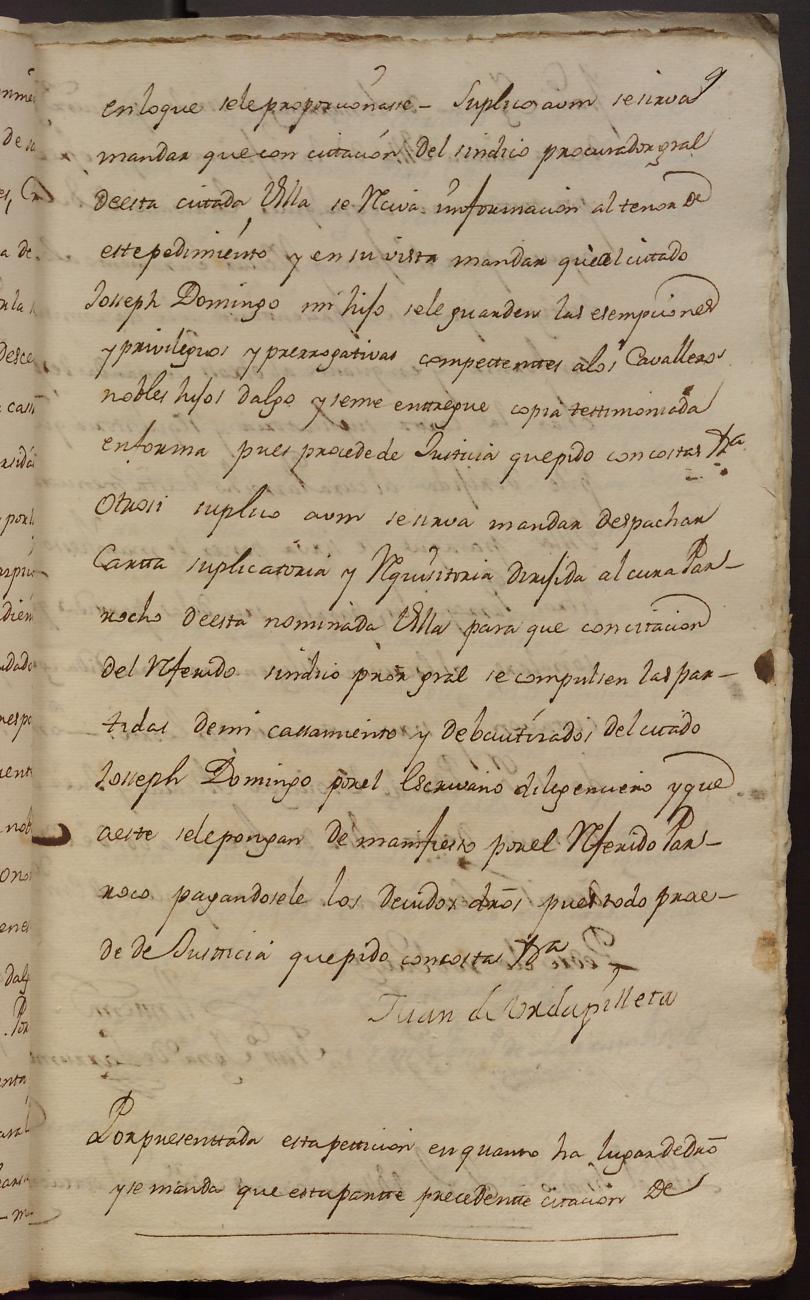 9
enloque seleproporcionasse – Suplico avm sesirva
mandar que con cittación del sindico procurador gral
deesta cittada Villa se Reciva informacion al tenor de
estepedimiento y en su vista mandar queal cittado
Joseph Domingo mi hijo sele guarden las esempciones
y privilegios y prerrogativas competentes alos Cavalleros
nobles hijos dalgo y seme entregue copia testimoniada
enforma pues procede de Justicia quepido con costas &a
Otrosi suplico avm sesirva mandar despachar
Cartta suplicatoria y Requisitoria dirijida al cura Par–
rocho deesta nominada Villa para que concitacion
del Referido sindico pror gral se compulsen las par–
tidas demi cassamiento y debautizados del cittado
Joseph Domingo porel Escrivano diligenciero yque
aeste selepongan de manifiesto porel Referido Par–
roco pagandosele los devidos dros pues todo proce–
de de Justicia quepido concostas &a
Juan de Urdapilleta
Por presenttada estapeticion en quanto ha lugar dedro
y se manda que estapartte precedentte citacion de